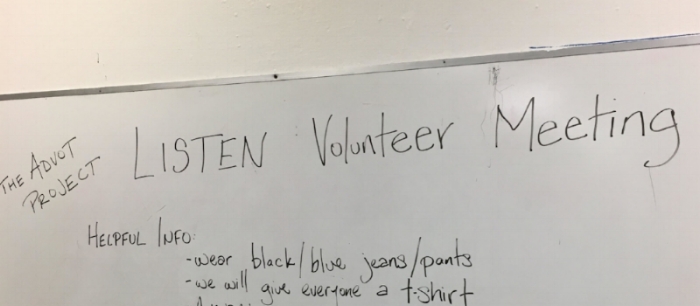 THE ADVOT
PROJECT
LISTEN Volunteer Meeting
HELPFUL INFO:
-wear black/blue jeans/pants
-we will give everyone a t-shirt